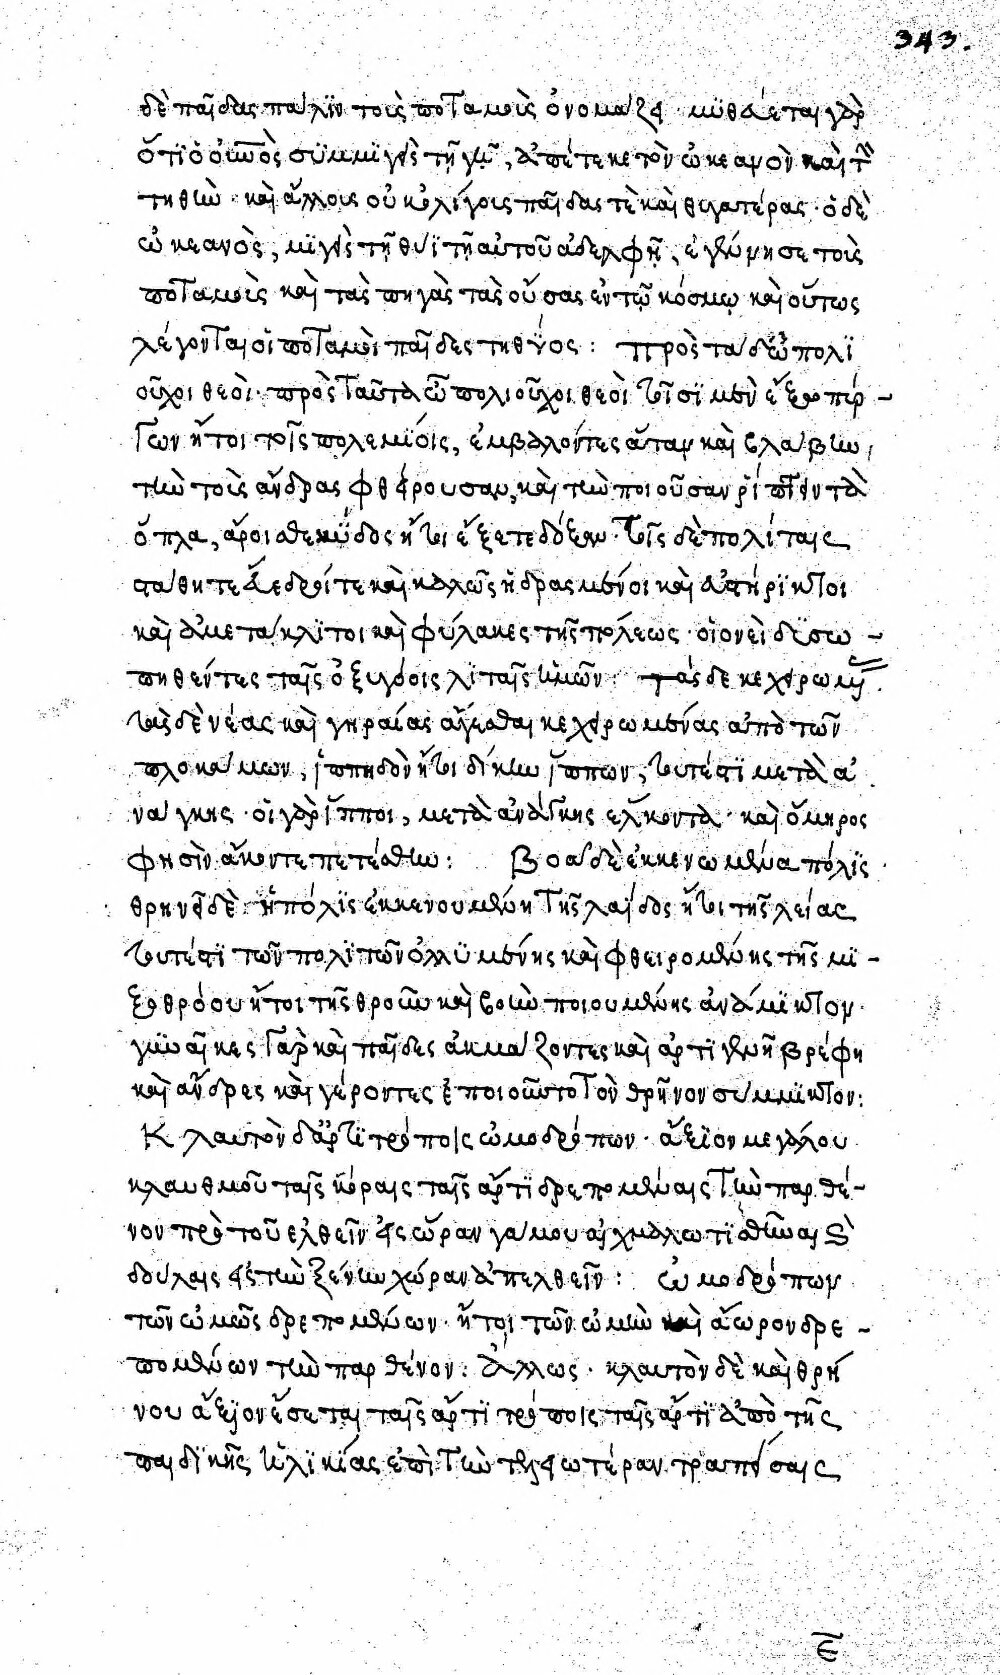 343.
δὲ παῖδας πάλϊν τοῖς ποταμοῖς ὀνομάζει · μϋθεύεται γὰρ
ὅτϊ ὁ οὐρανὸς συμμϊγεὶς τῇ γῇ, ἀπέτεκε τὸν ὠκεανὸν καὶ τὴν
τηθὺν · καὶ ἄλλους οὐκ ὀλίγους παῖδας τὲ καὶ θυγατέρας · ὁ δὲ
ὠκεανὸς, μϊγεὶς τῇ θυϊ τῇ αὐτοῦ ἀδελφῇ, ἐγέννησε τοῖς
ποταμοῖς καὶ τὰς πηγὰς τὰς οὔσας ἐν τῷ κόσμῳ καὶ οὕτως
λέγονται οἱ ποταμοὶ παῖδες τηθύος : πρὸς τάδ' ὦ πολϊ
οῦχοι θεοὶ · πρὸς ταῦτα ὦ πολιοῦχοι θεοὶ τοῖσϊ μὲν ἔξω πύρ -
γων ἤτοι τοῖς πολεμίοις, ἐμβαλόντες ἄταν καὶ βλάβην,
τὴν τοὺς ἄνδρας φθείρουσαν, καὶ τὴν ποιοῦσαν ῥίπτειν τὰ
ὅπλα, ἄροισθε κῦδος ἤτοι ἐξετε δόξαν · τοῖς δὲ πολίταις
στάθητε εὔεδροί τε καὶ καλῶς ἡδρασμένοι καὶ ἀστήρϊκτοι
καὶ ἀμετάκλϊτοι καὶ φύλακες τῆς πόλεως · οἱονεὶ δϋσω -
πηθέντες ταῖς ὀξυγόοις λϊταῖς ἡμῶν : τὰς δὲ κεχειρωμ
τὰς δὲ νέας καὶ γηραίας ἄγεσθαι κεχειρωμένας ἀπὸ τῶν
πλοκάμων, ἱππηδὸν ἤτοι δίκην ἵππων, τουτέστϊ μετὰ ἀ
νάγκης · οἱ γὰρ ἵπποι, μετὰ ἀνάγκης ἕλκονται · καὶ ὅμηρος
φησὶν ἄκοντε πετέσθην : Βοᾷ δὲ ἐκκενωμένα πόλϊς
θρηνεῖ δὲ ἡ πόλϊς ἐκκενουμένη τῆς λαΐδος ἤτοι τῆς λείας
τουτέστϊ τῶν πολϊτῶν ὀλλϋμένης καὶ φθειρομένης τῆς μϊ -
ξοθρόου ἤτοι τῆς θροῦν καὶ βοὴν ποιουμένης ἀνάμϊκτον ·
γυναῖκες γὰρ καὶ παῖδες ἀκμάζοντες καὶ ἄρτϊ γενῆ βρέφη
καὶ ἄνδρες καὶ γέροντες ἐποιοῦντο τὸν θρῆνον σύμμϊκτον :
Κλαυτὸν δ' ἀρτϊτρόποις ὠμοδρόπων · ἄξϊον μεγάλου
κλαυθμοῦ ταῖς κόραις ταῖς ἄρτϊ δρεπομέναις τὴν παρθέ -
νον πρὸ τοῦ ἐλθεῖν εἰς ὥραν γάμου αἰχμαλωτϊσθῆναι καὶ
δούλαις εἰς τὴν ξένην χώραν ἀπελθεῖν : ὠμοδρόπων
τῶν ὠμῶς δρεπομένων · ἤτοι τῶν ὠμὴν καὶ ἄωρον δρε -
πομένων τὴν παρθένον : Ἄλλως · κλαυτὸν δὲ καὶ θρή
νου ἄξϊον ἔσεται ταῖς ἀρτϊτρόποις ταῖς ἄρτϊ ἀπὸ τῆς
παιδϊκῆς ἡλϊκίας ἐπὶ τὴν τελειωτέραν τραπείσαις
ε